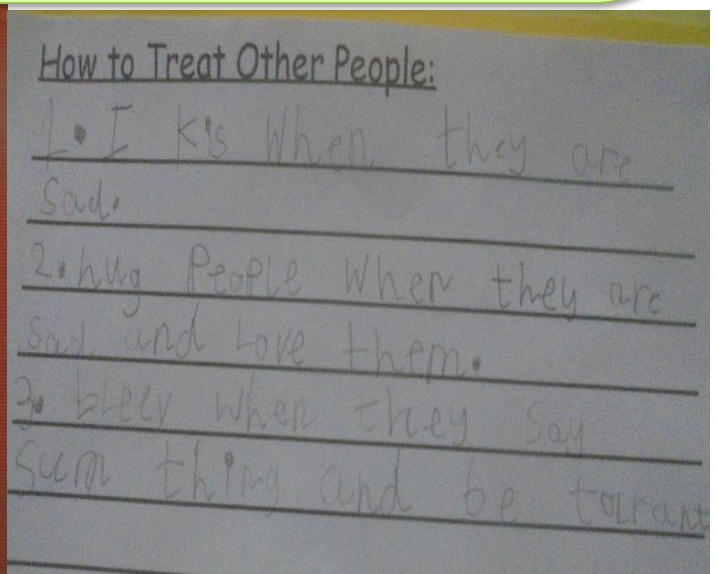 How to Treat Other People:
1. I kis when they are
sad.
2. hug People when they are
sad and Love them.
3. bleev when they say
sum thing and be tolrant